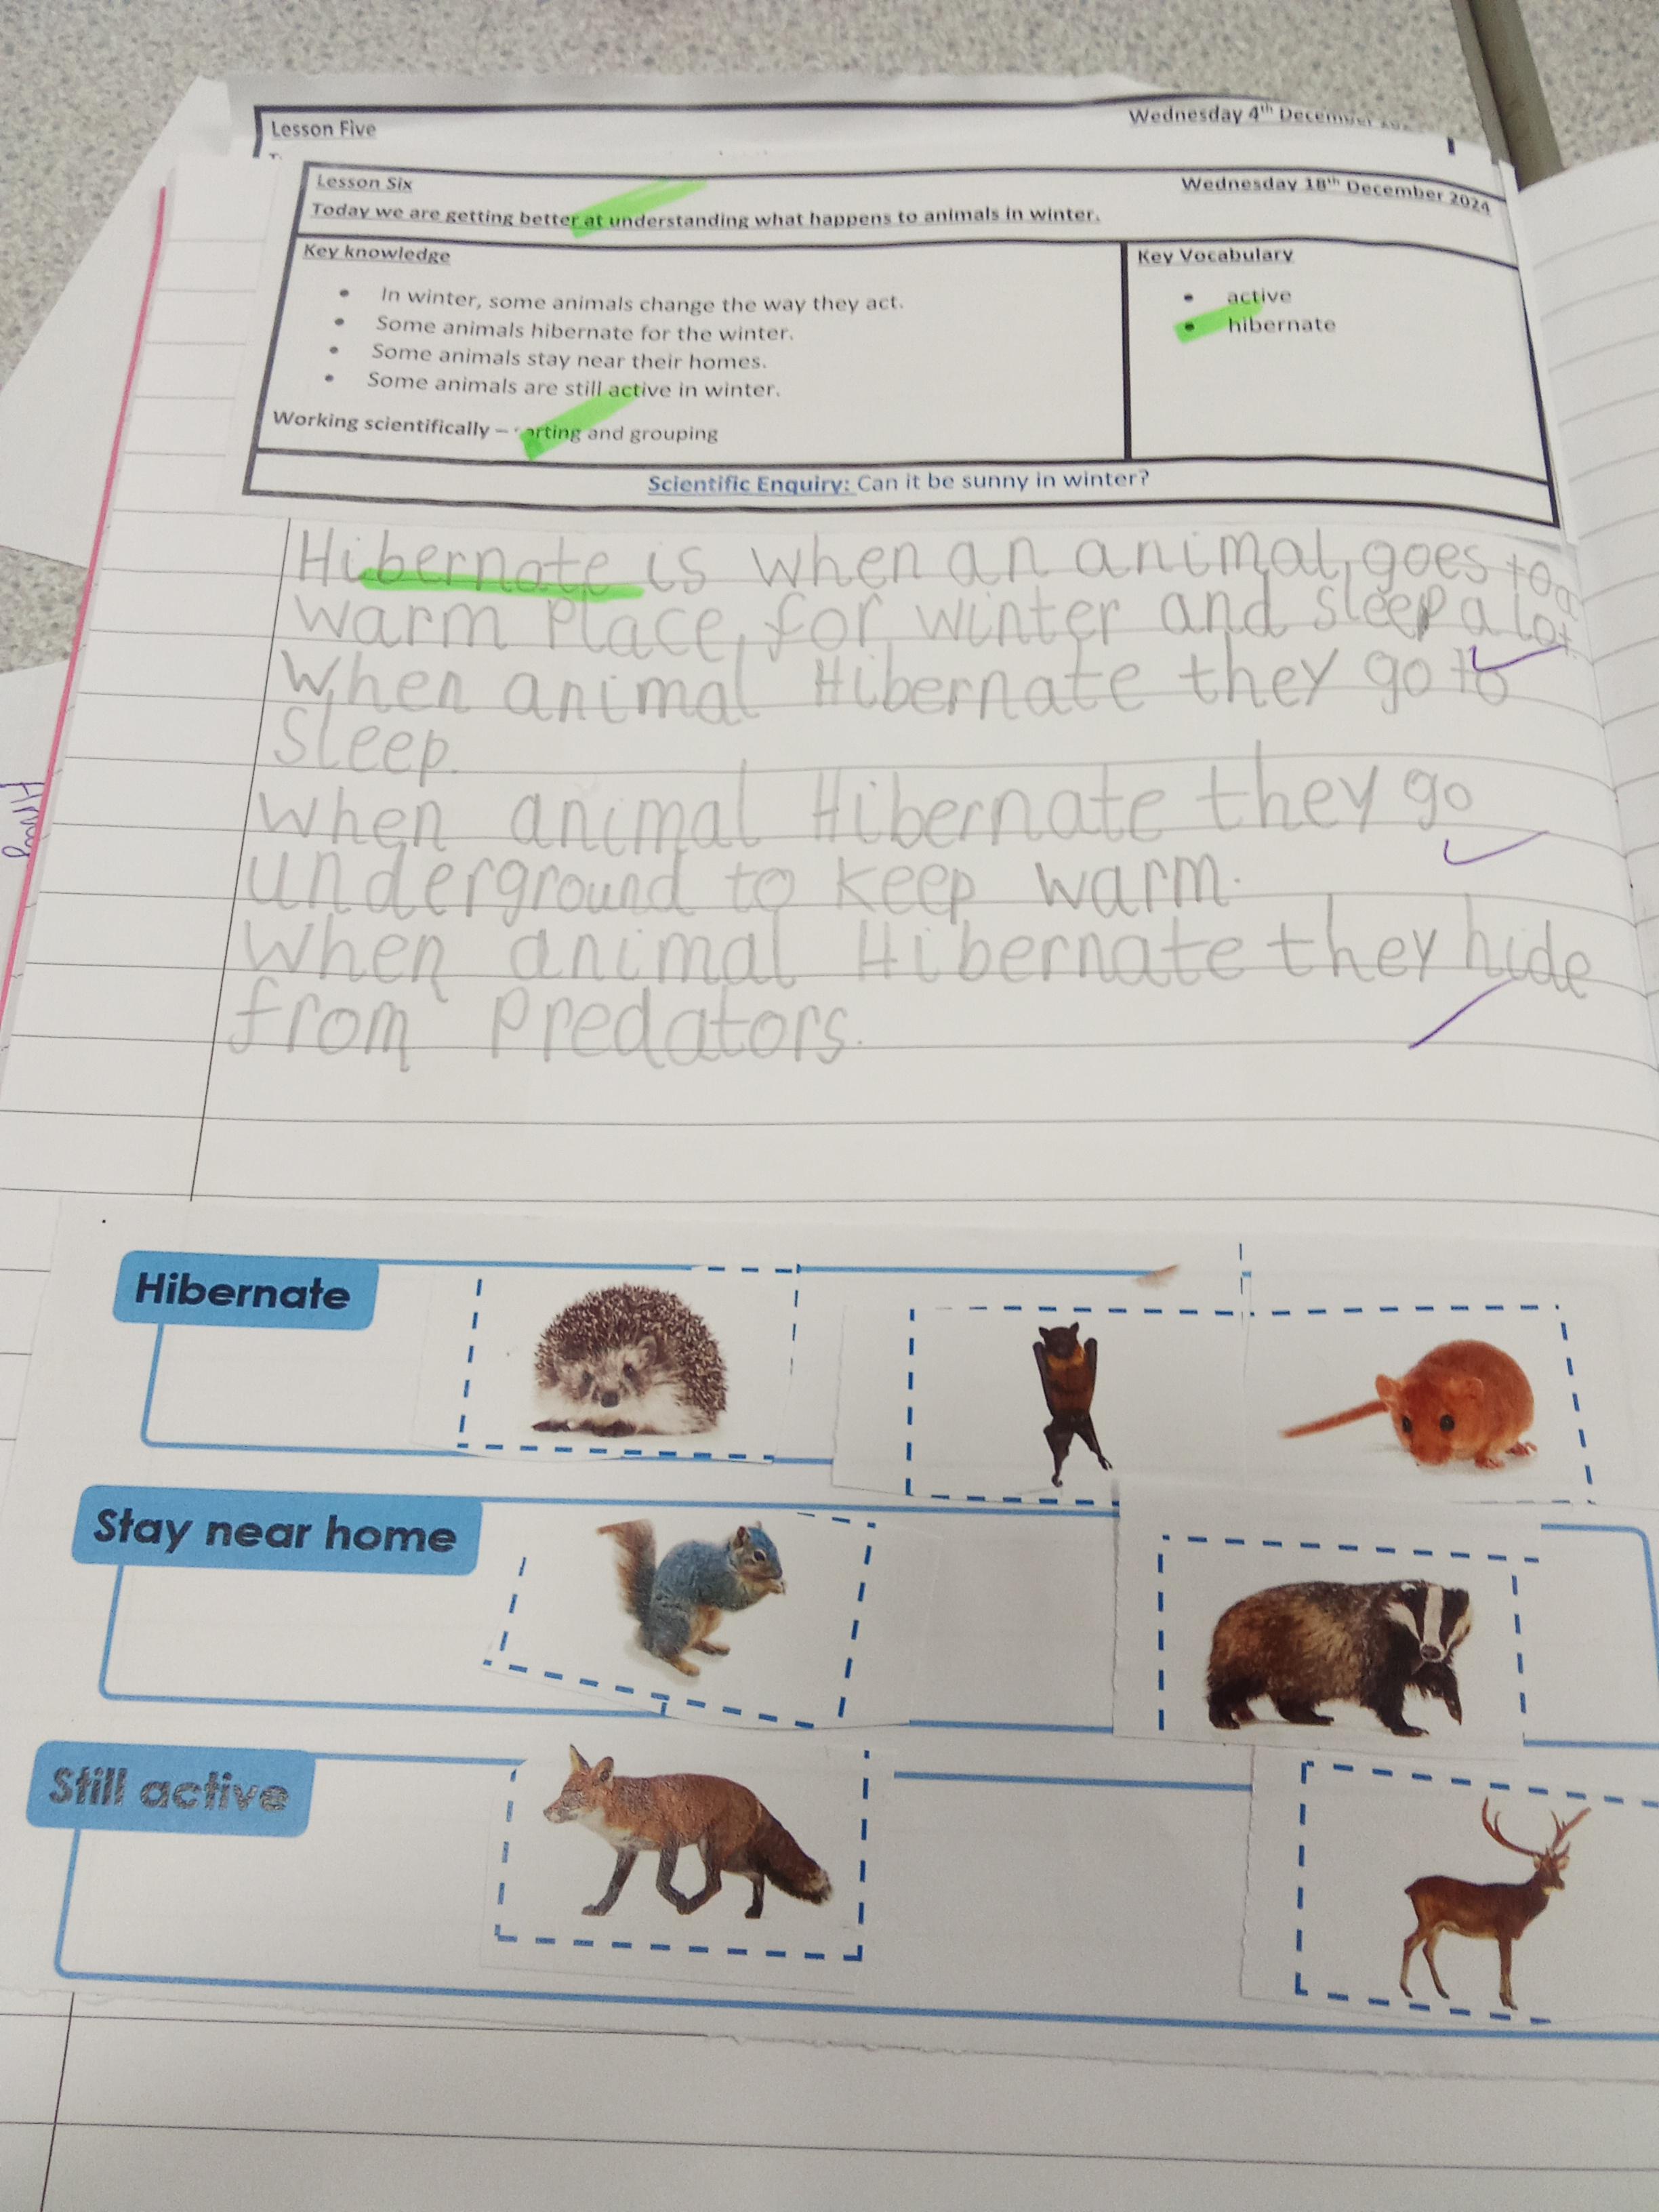 Lesson Five
Wednesday 4th December
Lesson Six
Wednesday 18th December 2024
Today we are getting better at understanding what happens to animals in winter.
Key knowledge
• In winter, some animals change the way they act.
• Some animals hibernate for the winter.
• Some animals stay near their homes.
• Some animals are still active in winter.
Working scientifically – sorting and grouping
Key Vocabulary
• active
• hibernate
Scientific Enquiry: Can it be sunny in winter?
Hibernate is when an animal goes to a
warm Place for winter and sleep a lot.
When animal Hibernate they go to
Sleep.
When animal Hibernate they go
underground to keep warm.
When animal Hibernate they hide
from Predators.
Hibernate
Stay near home
Still active